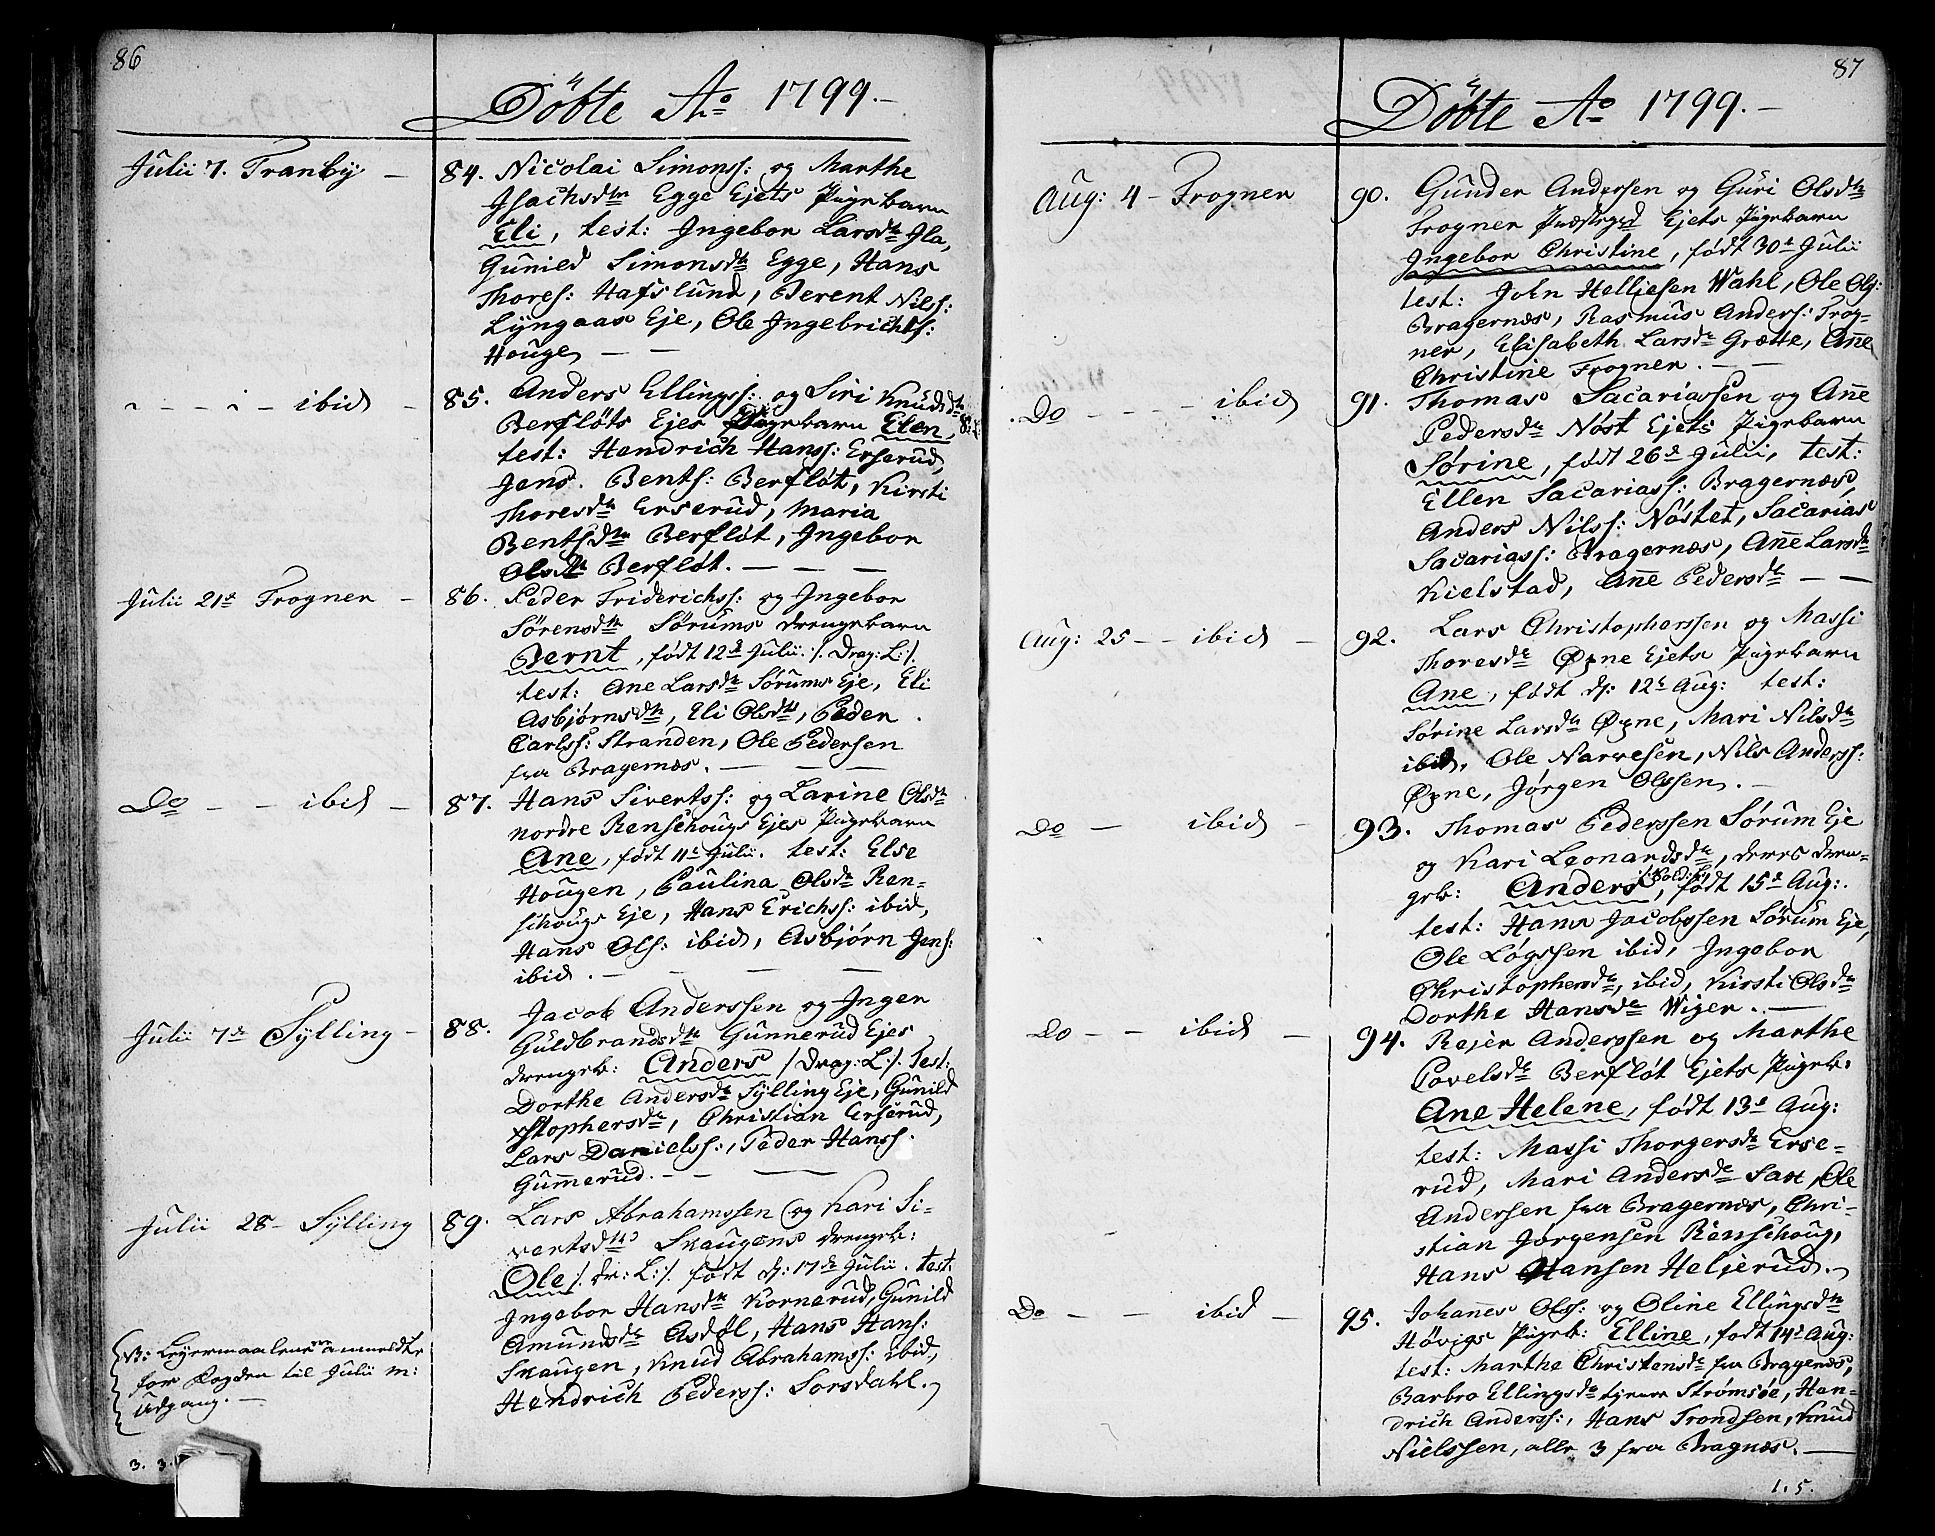 86
Döbte Ao 1799.-
Julii 7. Tranby -
84. Nicolai Simonss: og Marthe
Isachsdtr Egge Ejets Pigebarn
Eli, test: Ingebor Larsdtr Jla,
Gunild Simonsdtr Egge, Hans
Thoress: Hafslund, Berent Nilss:
Lyngaas Eje, Ole Ingebrichts:
Houge — —
- - - - ibid -
85. Anders Ellingss: og Siri Knudsdtr
Berfløts Ejes Pigebarn Elen,
test: Hendrich Hanss: Erserud,
Jens Bentss: Berfløt, Kirsti
Thoresdtr Erserud, Maria
Bentsdtr Berfløt, Ingebor
Olsdtr Berfløt. — — —
Julii 21de Frogner -
86. Peder Friderichss: og Ingebor
Sørensdtr Sørums drengebarn
Bernt, født 12te Julii ·/. Drag: L:/.
test: Ane Larsdtr Sørums Eje, Eli
Asbjørnsdtr, Eli Olsdtr, Peder
Carlss: Stranden, Ole Pedersen
fra Bragernæs. — — —
Do - - ibid -
87. Hans Sivertss: og Larine Olsdtr
nordre Renschougs Ejes Pigebarn
Ane, født 11te Julii. test: Else
Hougen, Paulina Olsdtr Ren-
schougs Eje, Hans Erichss: ibid,
Hans Olss: ibid, Asbjørn Jens:
ibid. — — — —
Julii 7de Sylling -
88. Jacob Anderssen og Inger
Guldbrandsdtr Gunnerud Ejes
drengeb: Anders /Drag: L:/. Test:
Dorthe Andersdtr Sylling Eje, Gunild
Xstophersdtr, Christian Erserud,
Lars Danielss:, Peder Hanss:
Gummerud. — — —
Julii 28- Sylling
89. Lars Abrahamssen og Kari Si-
vertsdtr Skaugens drengeb:
Ole /. dr: L:/. født d: 17de Julii. test:
Ingebor Hansdtr Kornerud, Gunild
Amundsdtr Asdøl, Hans Hans:
Skaugen, Knud Abrahamss: ibid,
Hendrich Pederss: Sorsdahl.
NB: Leyermaalene anmeldte
for Fogden til Julii m:
Udgang. —
3. 3.
87
Döbte Ao 1799.-
Aug: 4 - Frogner
90. Gunder Andersen og Guri Olsdtr
Frogner Præstegrd Ejets Pigebarn
Ingebor Christine, født 30te Julii
test: John Helliesen Wahl, Ole Ols:
Bragernæs, Rasmus Anderss: Frog-
ner, Elisabeth Larsdtr Grætte, Añe
Christine Frogner. — —
Do - - - - ibid
91. Thomas Sacariassen og Añe
Pedersdtr Nøst Ejets Pigebarn
Sørine, født 26de Julii, test:
Ellen Sacariass: Bragernæs,
Anders Nilss: Nøstet, Sacarias
Sacariass: Bragernæs, Añe Larsdtr
Kielstad, Añe Pedersdtr — —
Aug: 25 - - ibid -
92. Lars Christopherssen og Massi
Thoresdtr Øgne Ejets Pigebarn
Ane, født d: 12te Aug: test:
Sørine Larsdtr Øgne, Mari Nilsdtr
ibid. Ole Narvesen, Nils Anderss:
Øgne, Jørgen Olssen. —
Do - ibid -
93. Thomas Pederssen Sørum Eje
og Kari Leonardsdtr, deres dren-
geb: Anders, født 15de Aug:
test: Hans Jacobssen Sørum Eje,
Ole Løgssen ibid, Ingebor
Christophersdtr, ibid, Kirsti Olsdtr
Dorthe Hansdtr Wiger. —
Do - - ibid -
94. Rejer Anderssen og Marthe
Povelsdtr Berfløt Ejets Pigeb:
Ane Helene, født 13de Aug:
test: Massi Thorgersdtr Erse-
rud, Mari Andersdtr Sast, Ole
Andersen fra Bragernæs, Chri-
stian Jørgensen Renschoug,
Hans Hansen Heljerud.
Do - - ibid -
95. Johannes Olss: og Oline Ellingsdtr
Høvigs Pigeb: Elline, født 14de Aug:
test: Marthe Christensdtr fra Bragernæs,
Barbro Ellingsdtr Strømsøe, Han-
drich Anderss:, Hans Trondsen, Knud
Nielssen, alle 3 fra Bragnæs. —
1. 5.